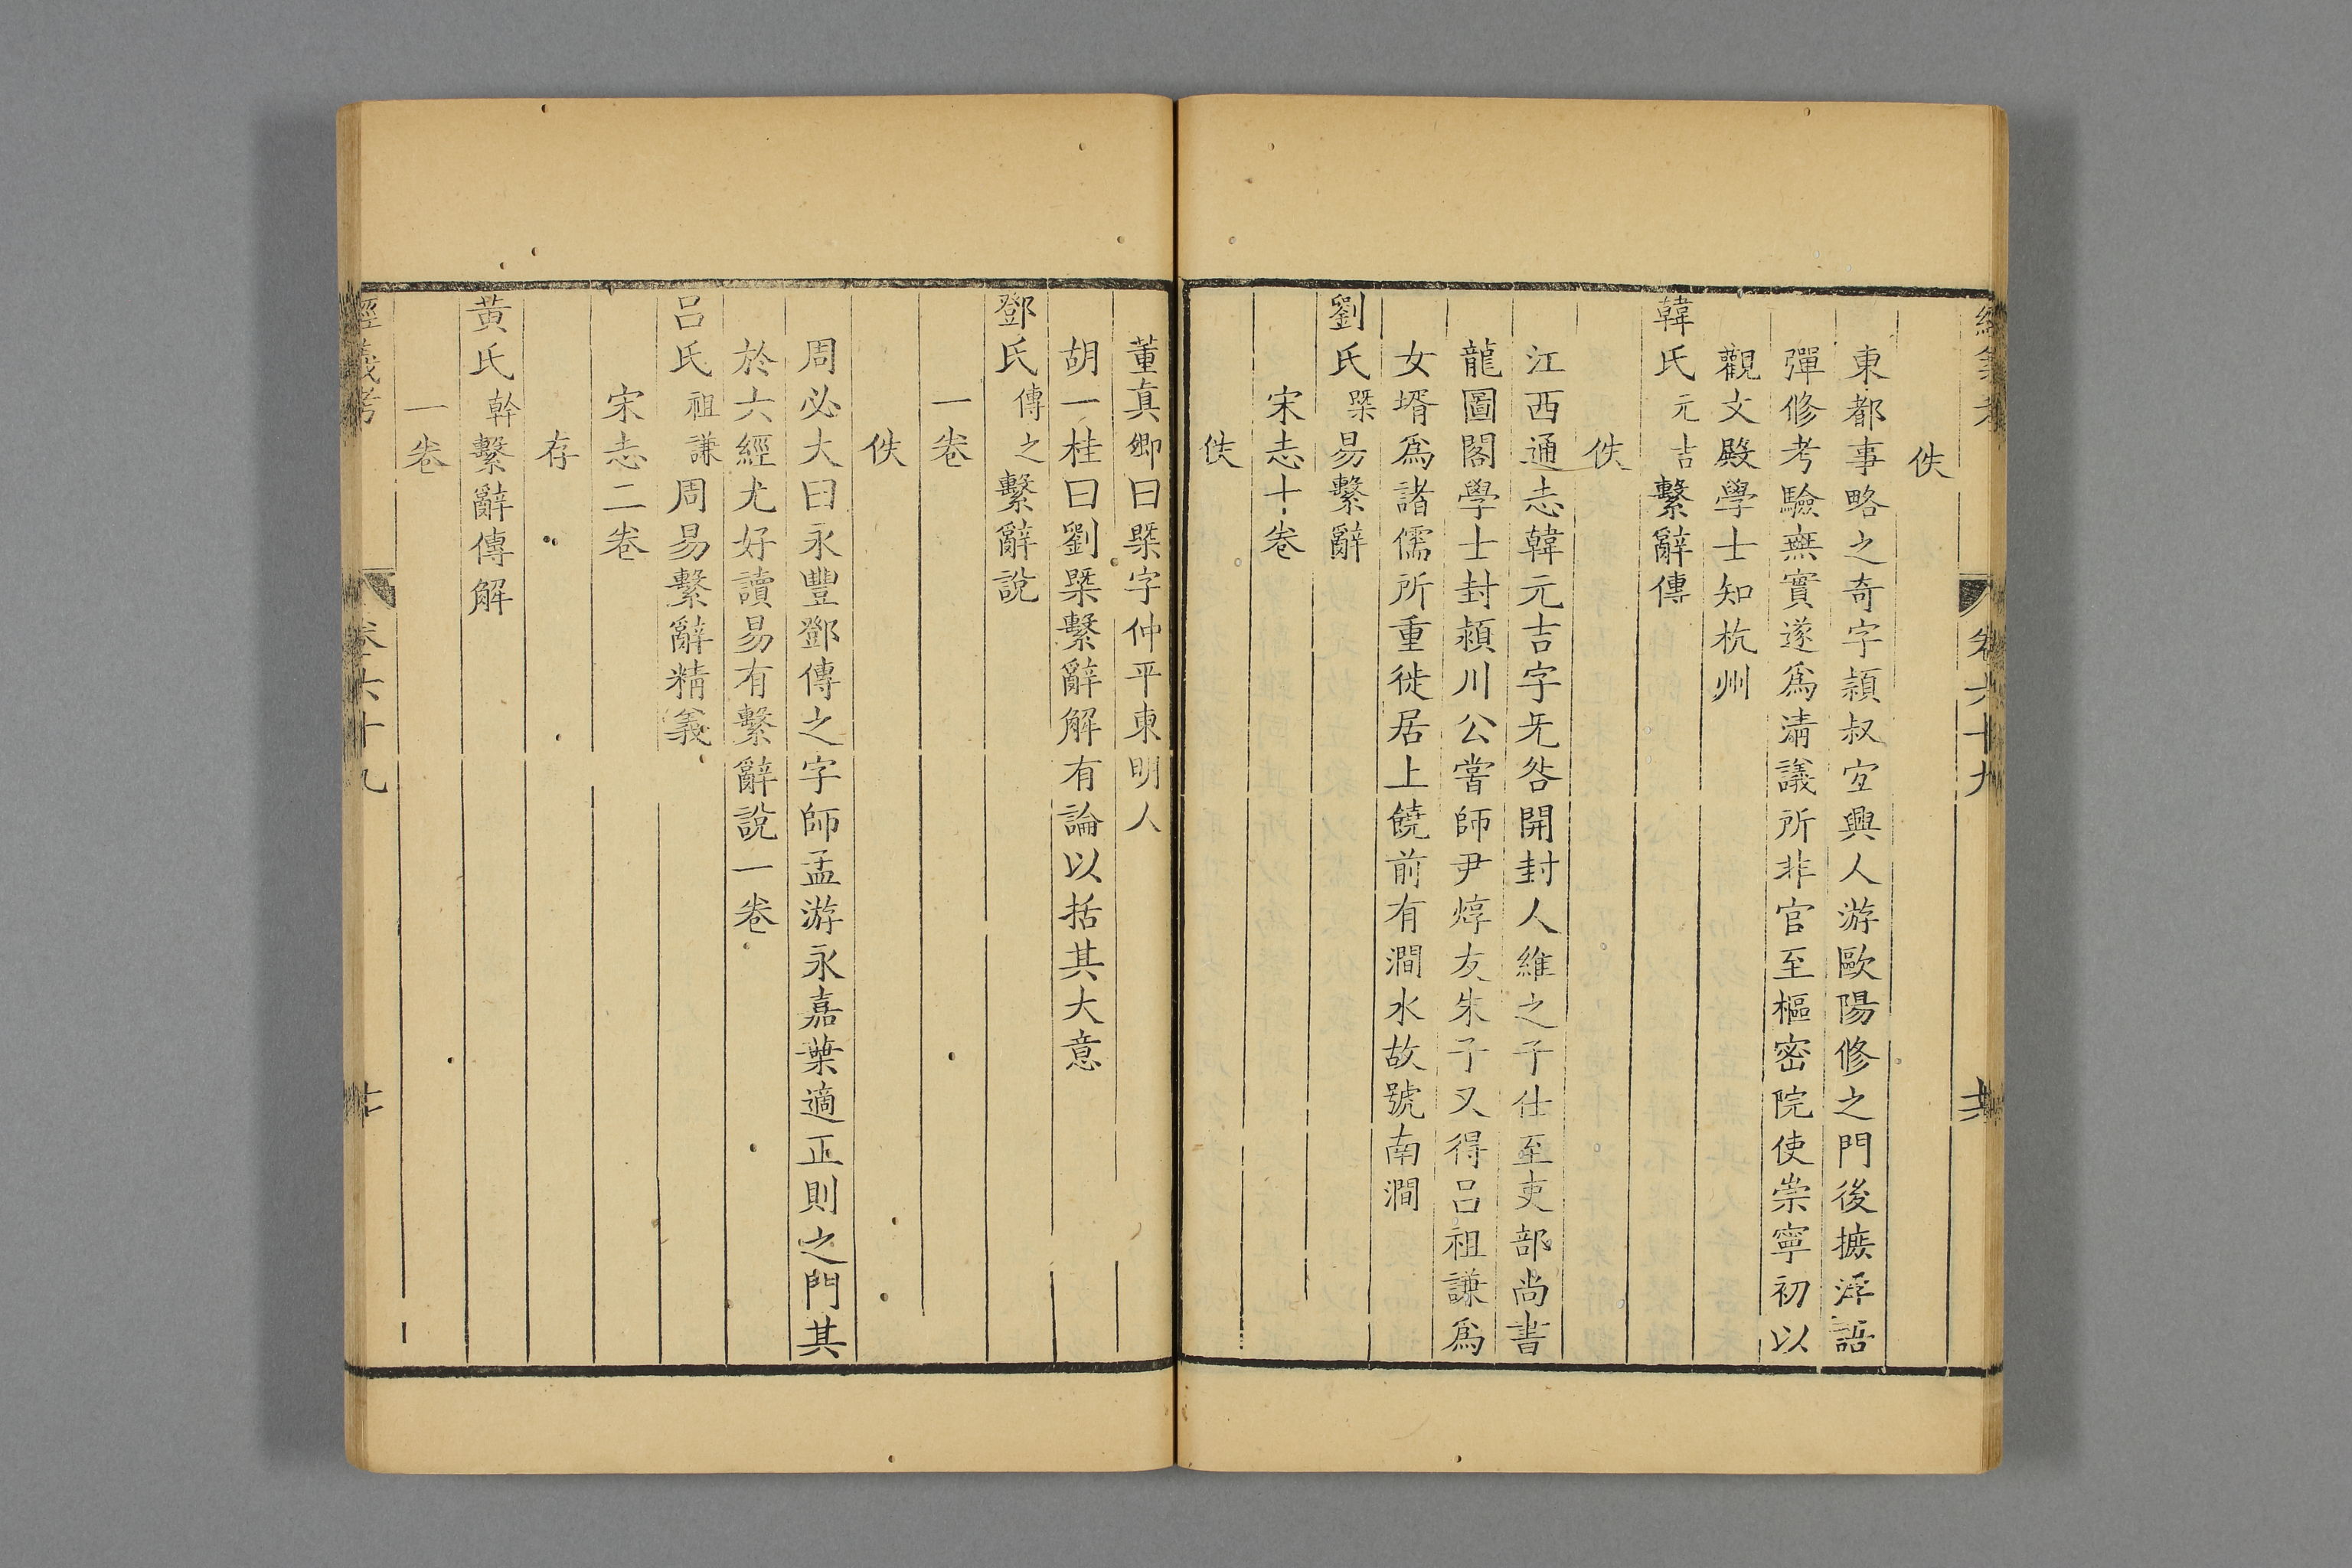 卷六十九
佚
東都事略之奇字頴叔宜興人游歐陽修之門後摭浮語
彈修考驗無實遂爲淸議所非官至樞密院使崇寧初以
觀文殿學士知杭州
韓氏元吉繫辭傳
佚
江西通志韓元吉字旡咎開封人維之子仕至吏部尚書
龍圖閣學士封潁川公嘗師尹焞友朱子又得呂祖謙爲
女壻爲諸儒所重徙居上饒前有澗水故號南澗
劉氏槩易繫辭
宋志十卷
佚
董真卿曰槩字仲平東明人
胡一桂曰劉槩繫辭解有論以括其大意
鄧氏傳之繫辭說
一卷
佚
周必大曰永豐鄧傳之字師孟游永嘉葉適正則之門其
於六經尤好讀易有繫辭說一卷
呂氏祖謙周易繫辭精義
宋志二卷
存
黃氏幹繫辭傳解
一卷
經義考 卷六十九